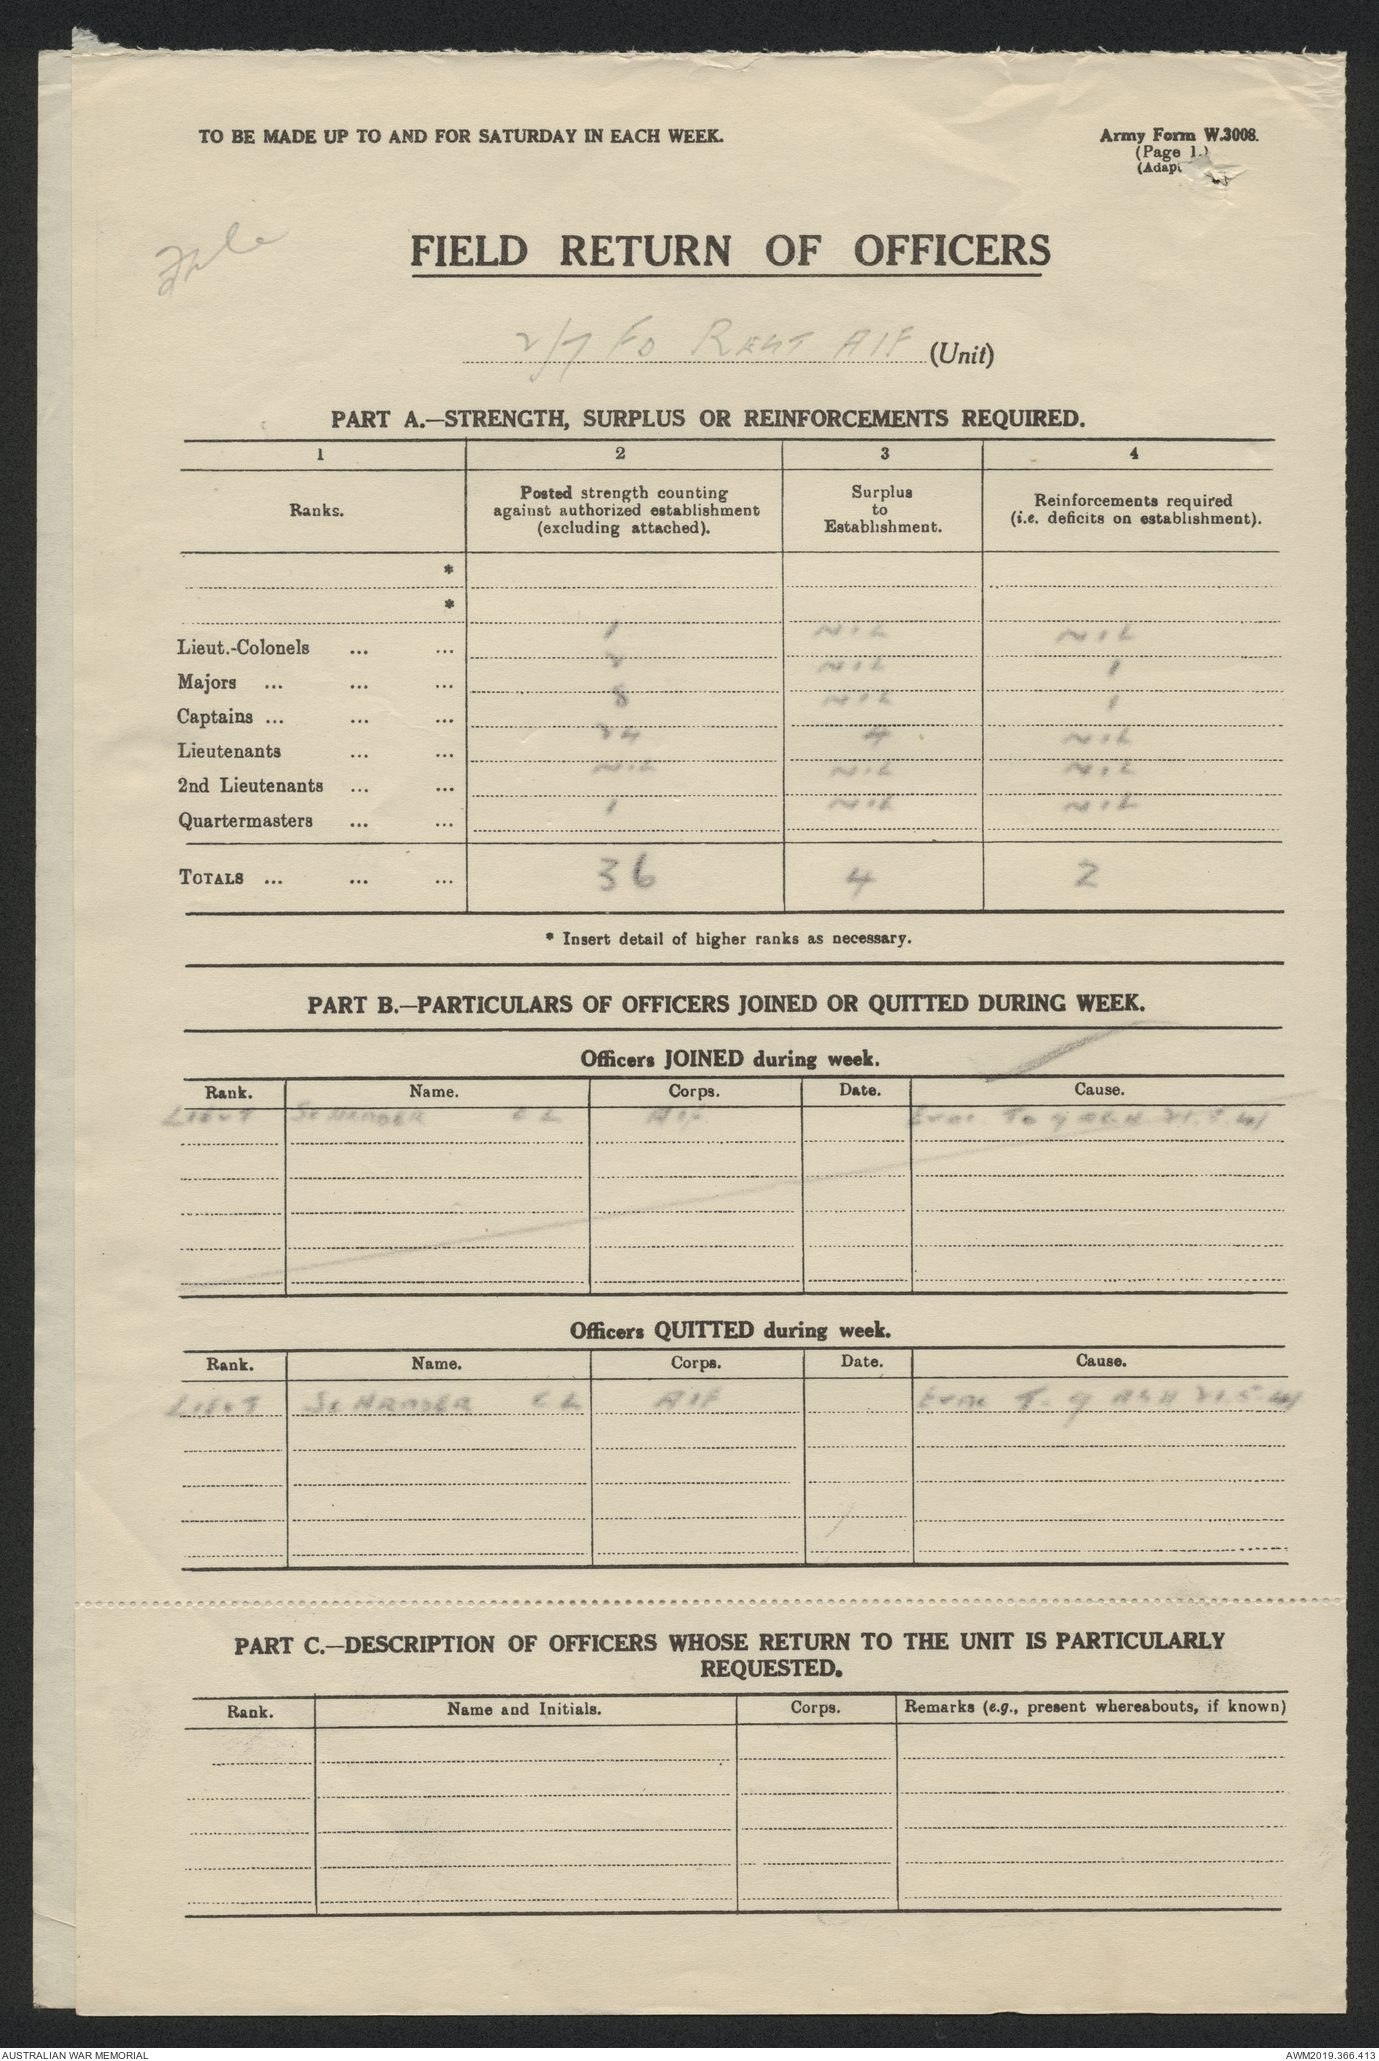 TO BE MADE UP TO AND FOR SATURDAY IN EACH WEEK.
Army Form W.3008.
(Page 1.)
(Adapt
File
FIELD RETURN OF OFFICERS
2/7 FD REGT AIF (Unit)
PART A.—STRENGTH, SURPLUS OR REINFORCEMENTS REQUIRED.
1 2 3 4
Ranks. Posted strength counting against authorized establishment (excluding attached). Surplus to Establishment. Reinforcements required (i.e. deficits on establishment).
*
*
Lieut.-Colonels ... ... 1 NIL NIL
Majors ... ... ... 2 NIL 1
Captains ... ... ... 8 NIL 1
Lieutenants ... ... 24 4 NIL
2nd Lieutenants ... ... NIL NIL NIL
Quartermasters ... ... 1 NIL NIL
TOTALS ... ... ... 36 4 2
* Insert detail of higher ranks as necessary.
PART B.—PARTICULARS OF OFFICERS JOINED OR QUITTED DURING WEEK.
Officers JOINED during week.
Rank. Name. Corps. Date. Cause.
LIEUT SCHRADER C L AIF Evac To 9 AGH 21.5.41
Officers QUITTED during week.
Rank. Name. Corps. Date. Cause.
LIEUT SCHRADER C L AIF Evac To 9 AGH 21.5.41
PART C.—DESCRIPTION OF OFFICERS WHOSE RETURN TO THE UNIT IS PARTICULARLY
REQUESTED.
Rank. Name and Initials. Corps. Remarks (e.g., present whereabouts, if known)
AUSTRALIAN WAR MEMORIAL
AWM2019.366.413